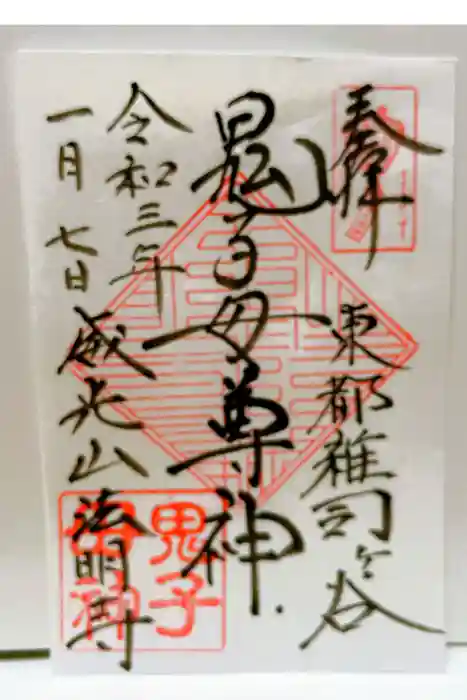 奉拝
東都雑司ヶ谷
鬼子母尊神
令和三年
一月七日
威光山
法明寺
鬼子
母神